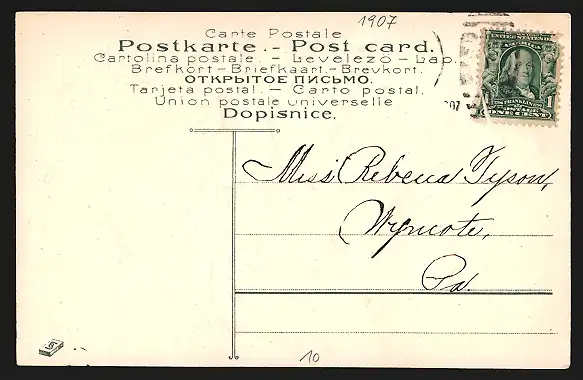 1907
Carte Postale
Postkarte. - Post card.
Cartolina postale. - Levelező - Lap.
Brefkort - Briefkaart - Brevkort.
ОТКРЫТОЕ ПИСЬМО.
Tarjeta postal. - Carto postal.
Union postale universelle
Dopisnice.
UNITED STATES OF
AMERICA
1
ONE CENT
07
Miss Rebecca Tyson,
Wyncote,
Pa.
10